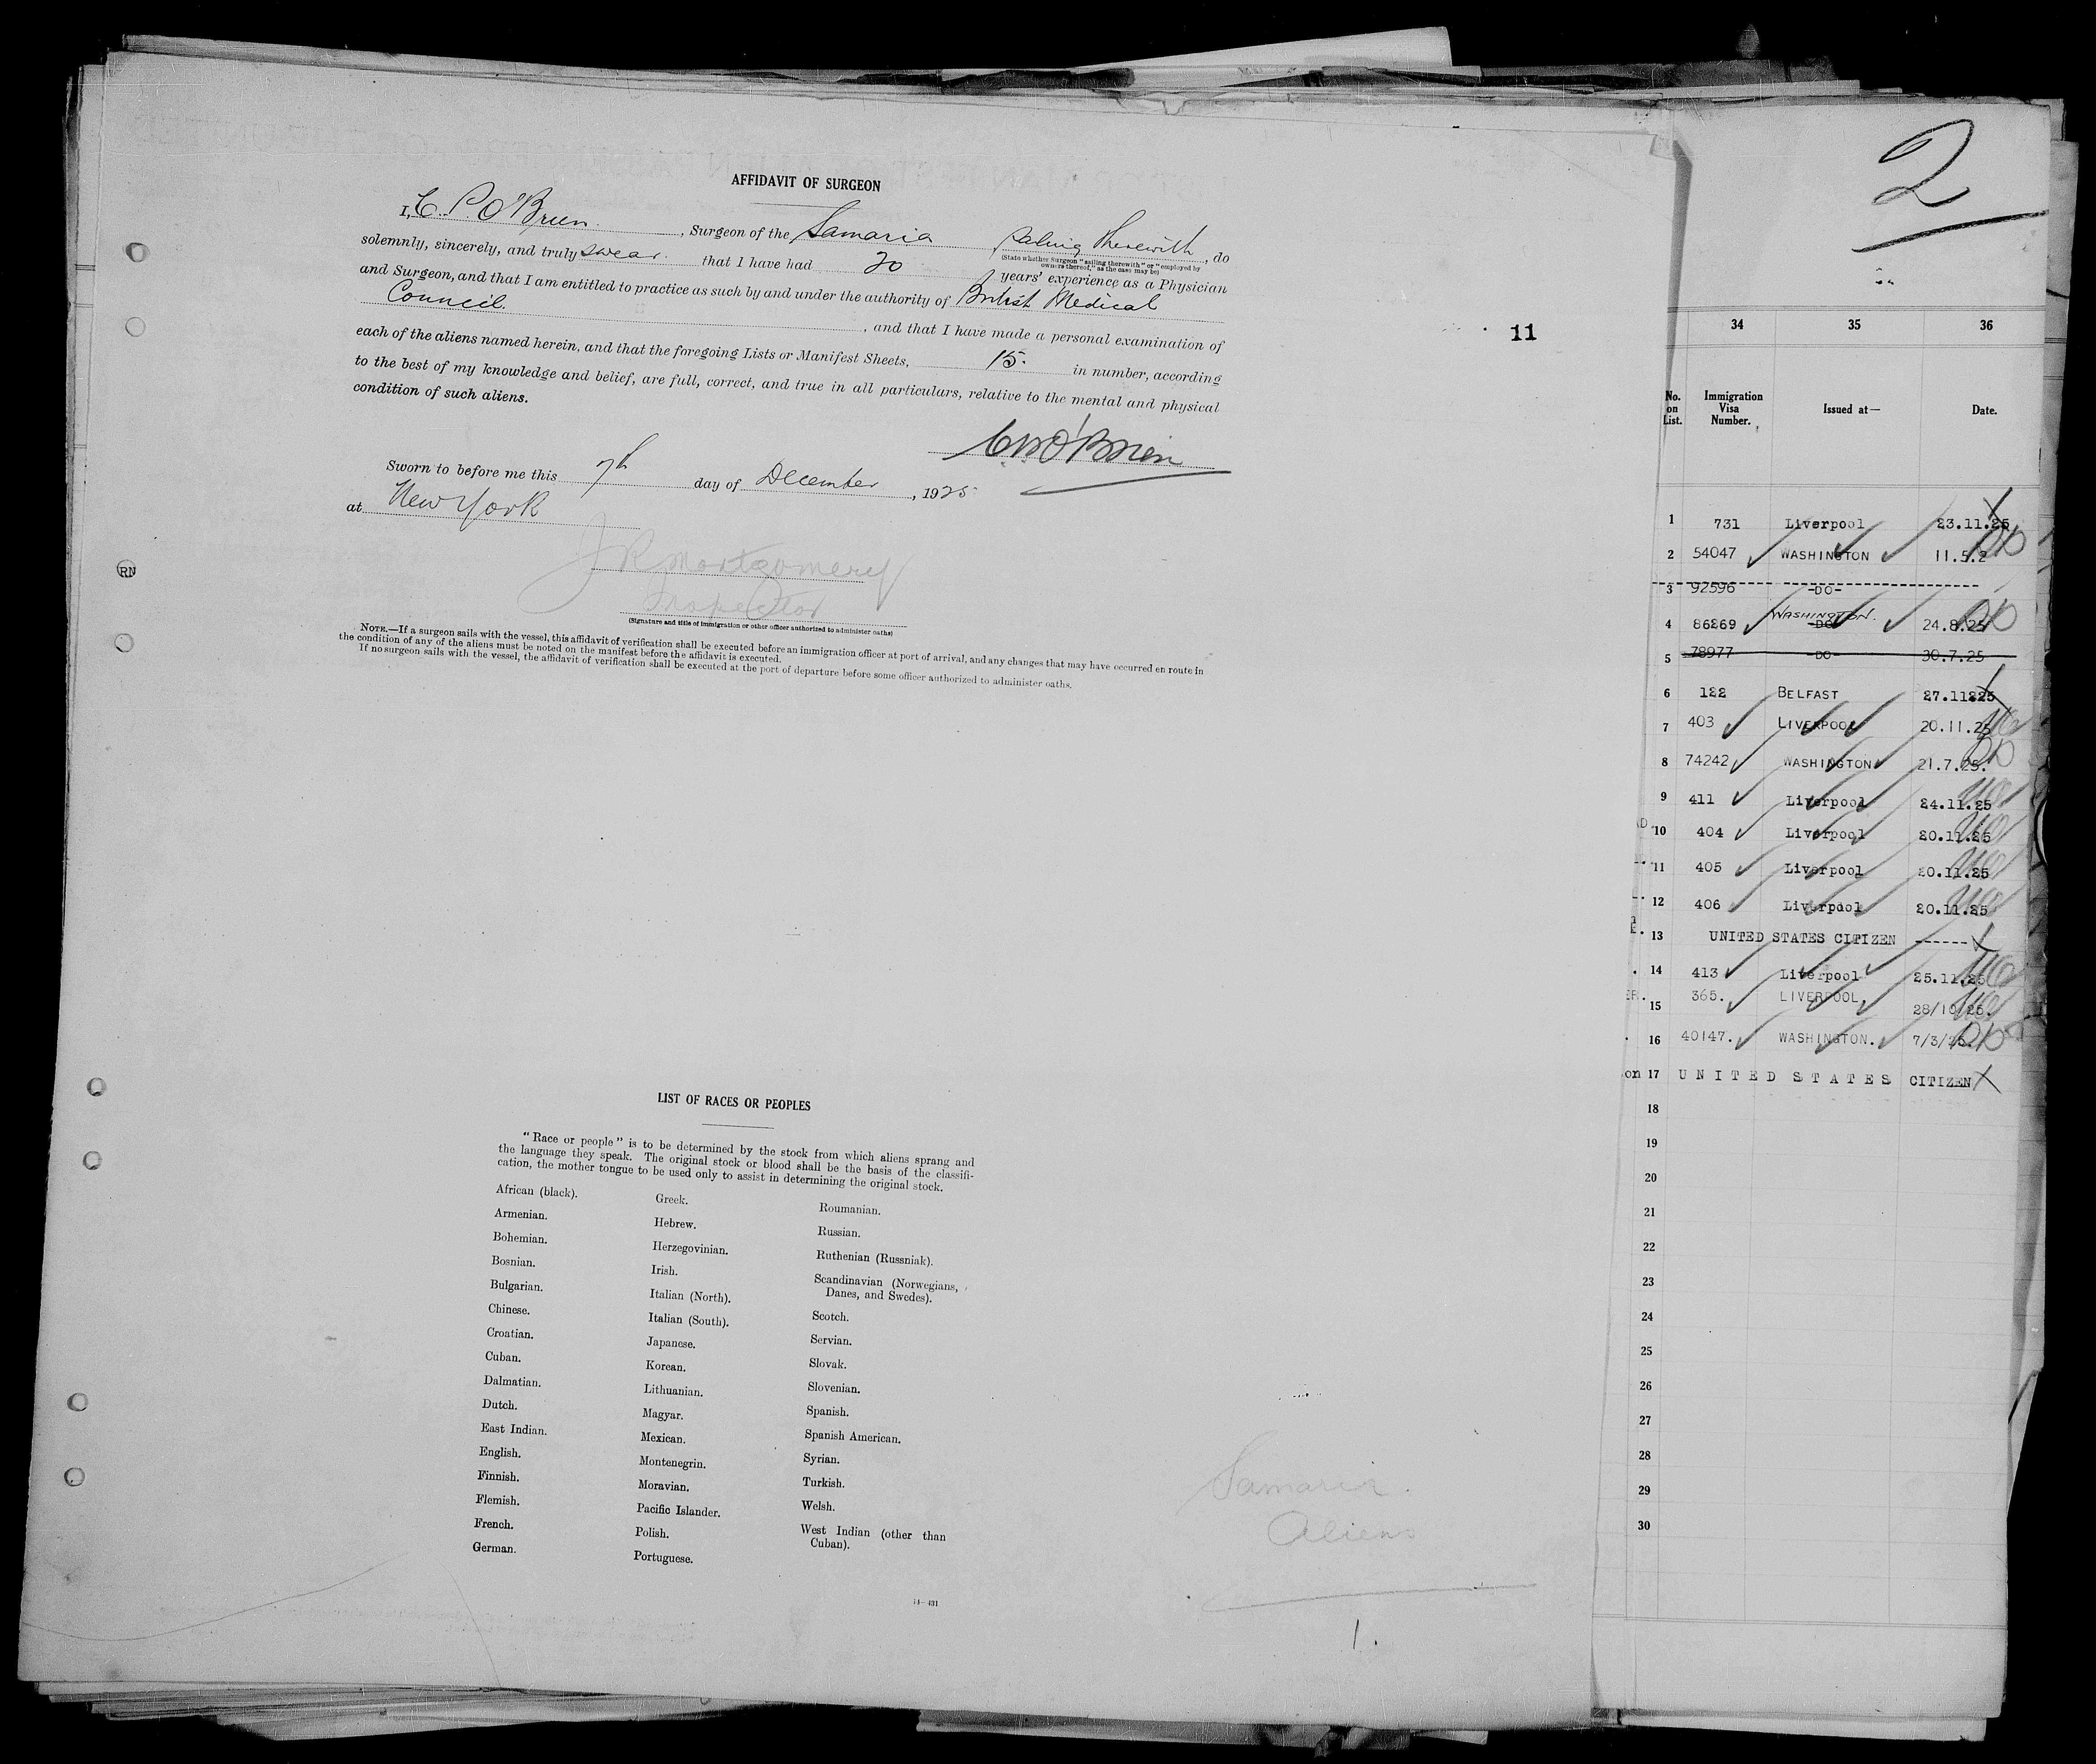 AFFIDAVIT OF SURGEON
I, C. P. O'Brien, Surgeon of the Samaria sailing therewith, do
(State whether Surgeon "sailing therewith" or "employed by owners thereof," as the case may be)
solemnly, sincerely, and truly swear that I have had 20 years' experience as a Physician
and Surgeon, and that I am entitled to practice as such by and under the authority of British Medical
Council, and that I have made a personal examination of
each of the aliens named herein, and that the foregoing Lists or Manifest Sheets, 15 in number, according
to the best of my knowledge and belief, are full, correct, and true in all particulars, relative to the mental and physical
condition of such aliens.
O'Brien
Sworn to before me this 7th day of December, 1925
at New York
J R Montgomery
Inspector
(Signature and title of immigration or other officer authorized to administer oaths)
NOTE.—If a surgeon sails with the vessel, this affidavit of verification shall be executed before an immigration officer at port of arrival, and any changes that may have occurred en route in
the condition of any of the aliens must be noted on the manifest before the affidavit is executed.
If no surgeon sails with the vessel, the affidavit of verification shall be executed at the port of departure before some officer authorized to administer oaths.
11
RN
LIST OF RACES OR PEOPLES
"Race or people" is to be determined by the stock from which aliens sprang and
the language they speak. The original stock or blood shall be the basis of the classifi-
cation, the mother tongue to be used only to assist in determining the original stock.
African (black).
Armenian.
Bohemian.
Bosnian.
Bulgarian.
Chinese.
Croatian.
Cuban.
Dalmatian.
Dutch.
East Indian.
English.
Finnish.
Flemish.
French.
German.
Greek.
Hebrew.
Herzegovinian.
Irish.
Italian (North).
Italian (South).
Japanese.
Korean.
Lithuanian.
Magyar.
Mexican.
Montenegrin.
Moravian.
Pacific Islander.
Polish.
Portuguese.
Roumanian.
Russian.
Ruthenian (Russniak).
Scandinavian (Norwegians,
Danes, and Swedes).
Scotch.
Servian.
Slovak.
Slovenian.
Spanish.
Spanish American.
Syrian.
Turkish.
Welsh.
West Indian (other than
Cuban).
14—431
Samaria
Aliens
1.
2
34 35 36
No. on List. Immigration Visa Number. Issued at— Date.
1 731 Liverpool 23.11.25
2 54047 WASHINGTON 11.5.2
3 92596 -DO-
4 86869 WASHINGTON. -DO- 24.8.25
5 78977 -DO- 30.7.25
6 122 BELFAST 27.11.25
7 403 LIVERPOOL 20.11.25
8 74242 WASHINGTON 21.7.25.
9 411 Liverpool 24.11.25
10 404 Liverpool 20.11.25
11 405 Liverpool 20.11.25
12 406 Liverpool 20.11.25
13 UNITED STATES CITIZEN ------
14 413 Liverpool 25.11.25
15 365. LIVERPOOL. 28/10/25.
16 40147. WASHINGTON. 7/3/25.
on 17 UNITED STATES CITIZEN
18
19
20
21
22
23
24
25
26
27
28
29
30